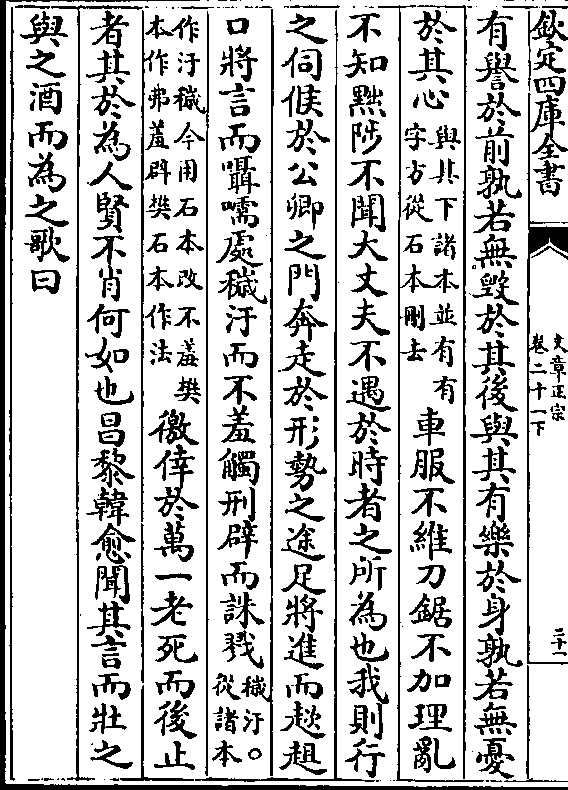 欽定四庫全書
文章正宗
卷二十一下
有譽於前孰若無毀於其後與其有樂於身孰若無憂
於其心與其下諸本並有有字方從石本刪去車服不維刀鋸不加理亂
不知黜陟不聞大丈夫不遇於時者之所為也我則行
之伺候於公卿之門奔走於形勢之途足將進而趑趄
口將言而囁嚅處穢汙而不羞觸刑辟而誅戮穢汙。從諸本
作汙穢今用石本改不羞樊本作弗羞辟樊石本作法徼倖於萬一老死而後止
者其於為人賢不肖何如也昌黎韓愈聞其言而壯之
與之酒而為之歌曰